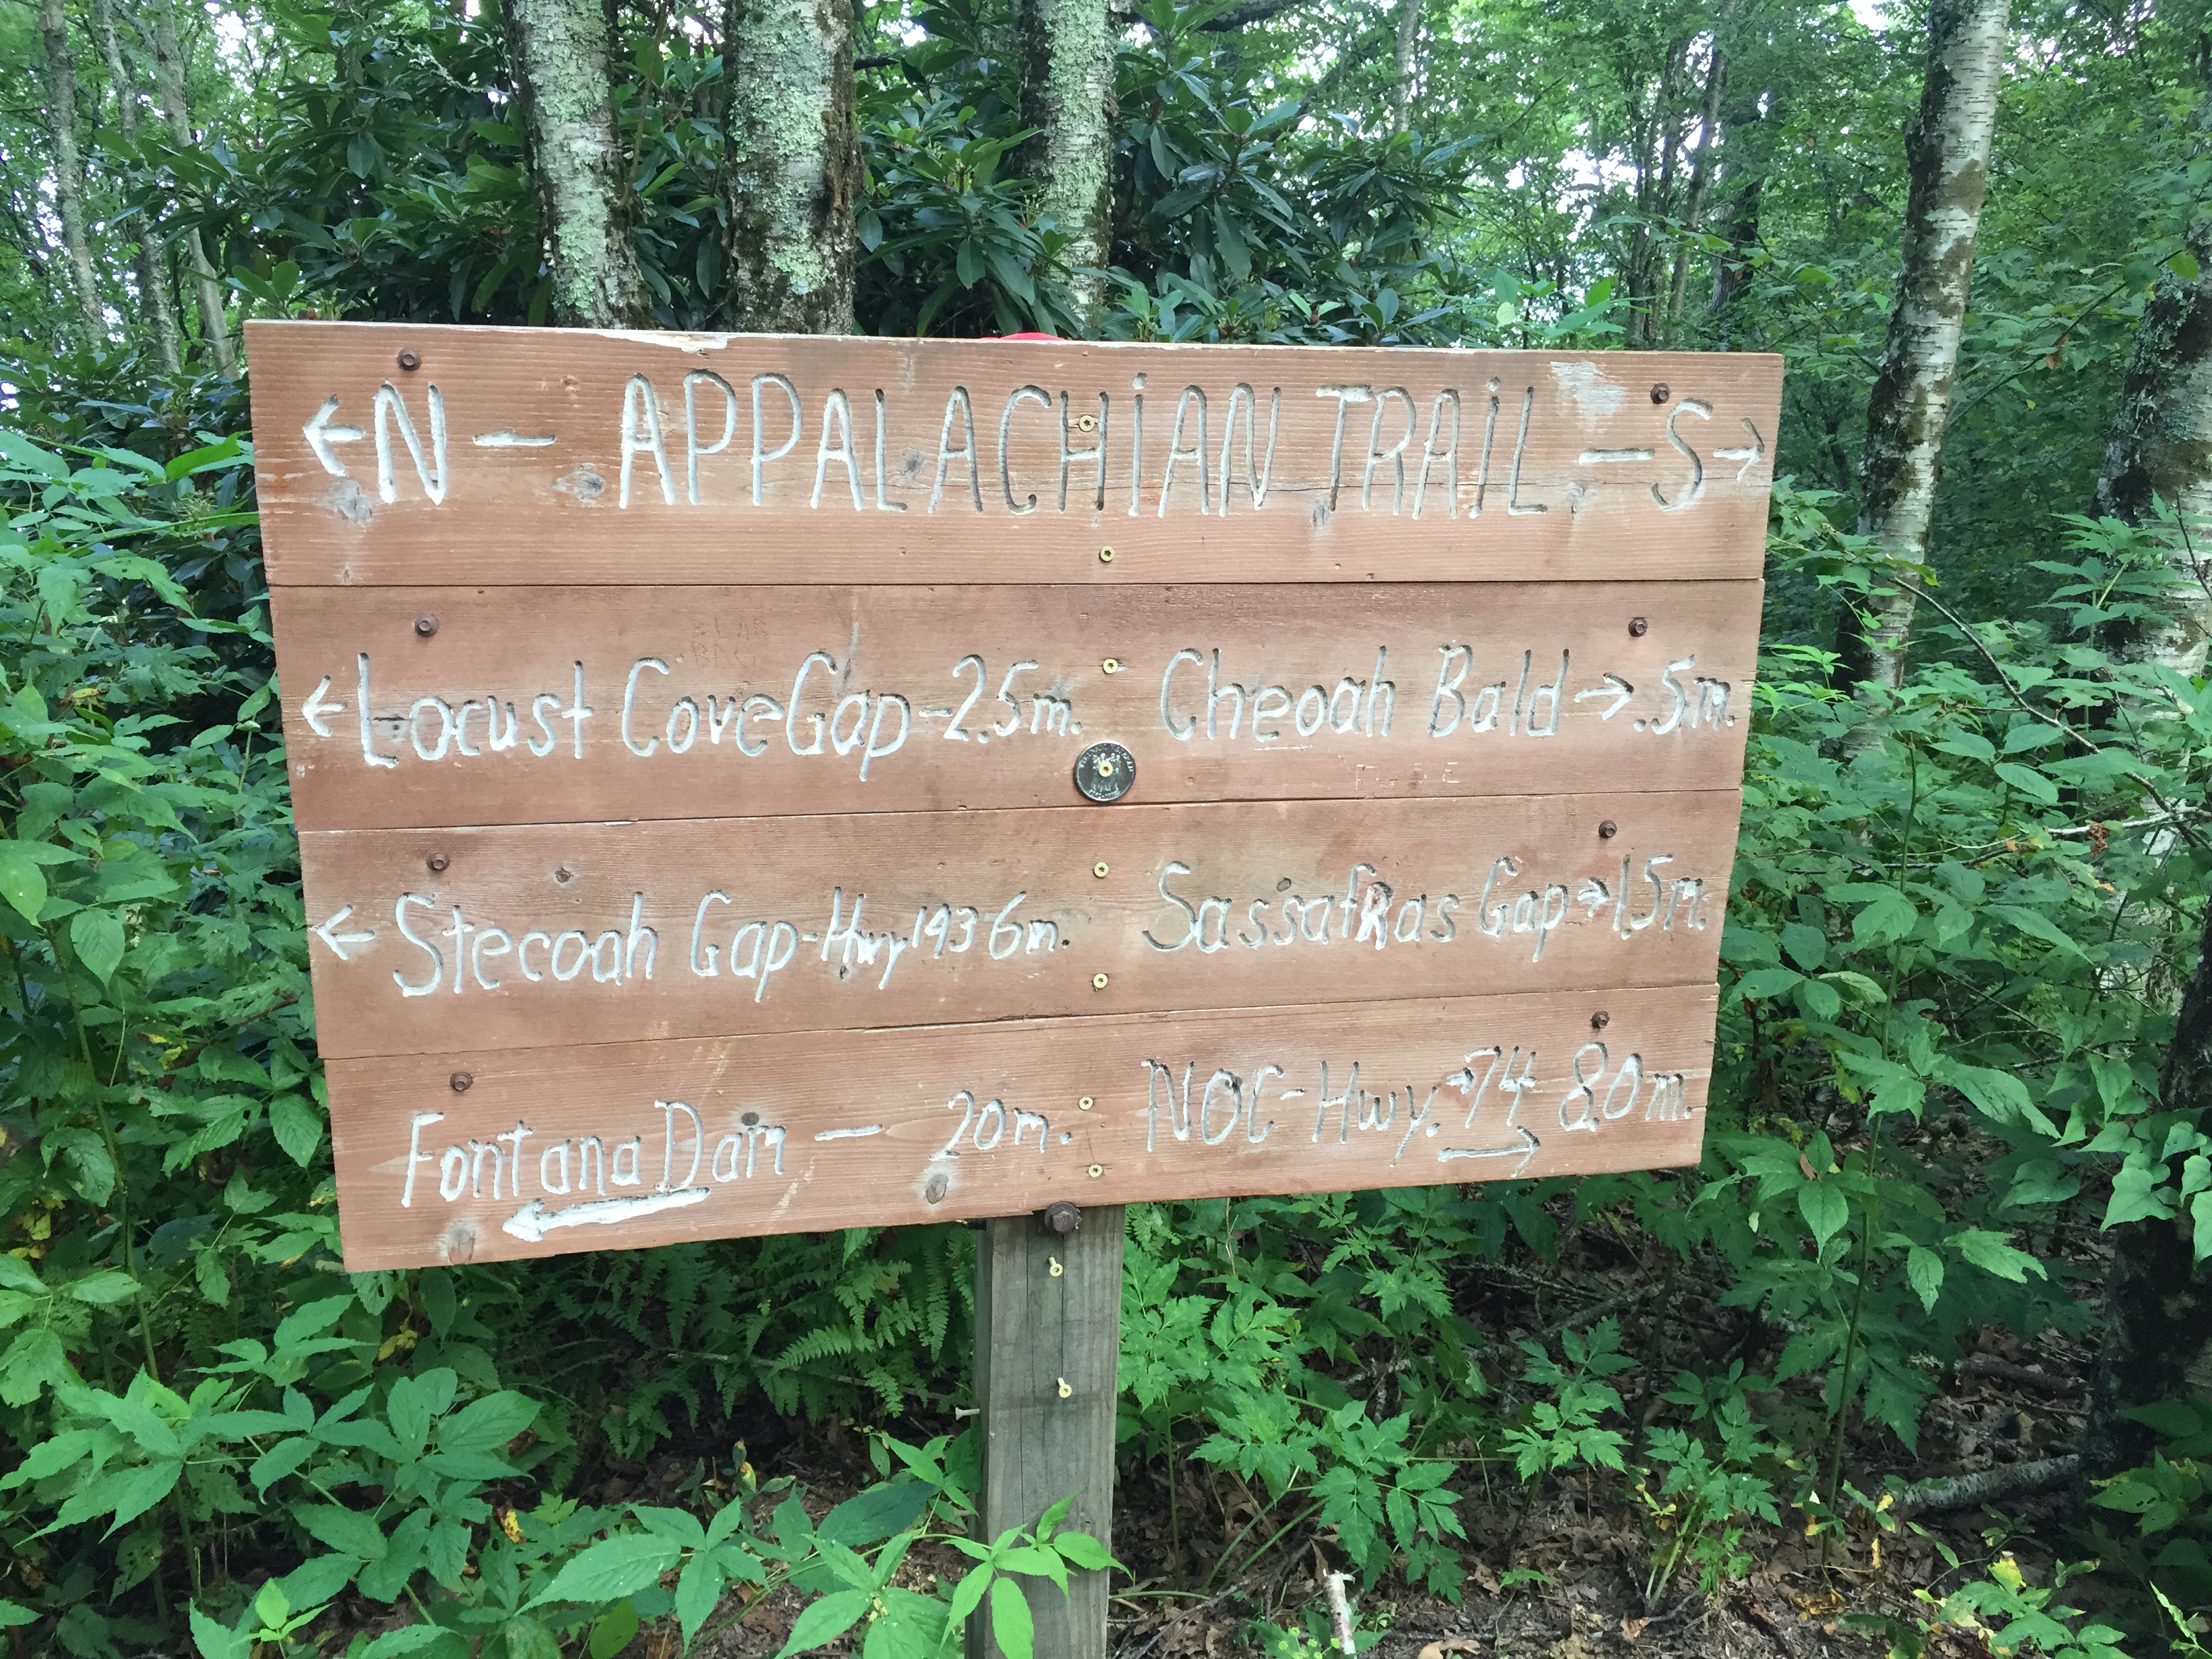 ←N — APPALACHiAN TRAiL — S→
←Locust Cove Gap - 2.5m. Cheoah Bald → .5m.
←Stecoah Gap - Hwy 143 6m. SassafRas Gap → 1.5m.
Fontana Dam — 20m. NOC - Hwy. 74 8.0m.
← →